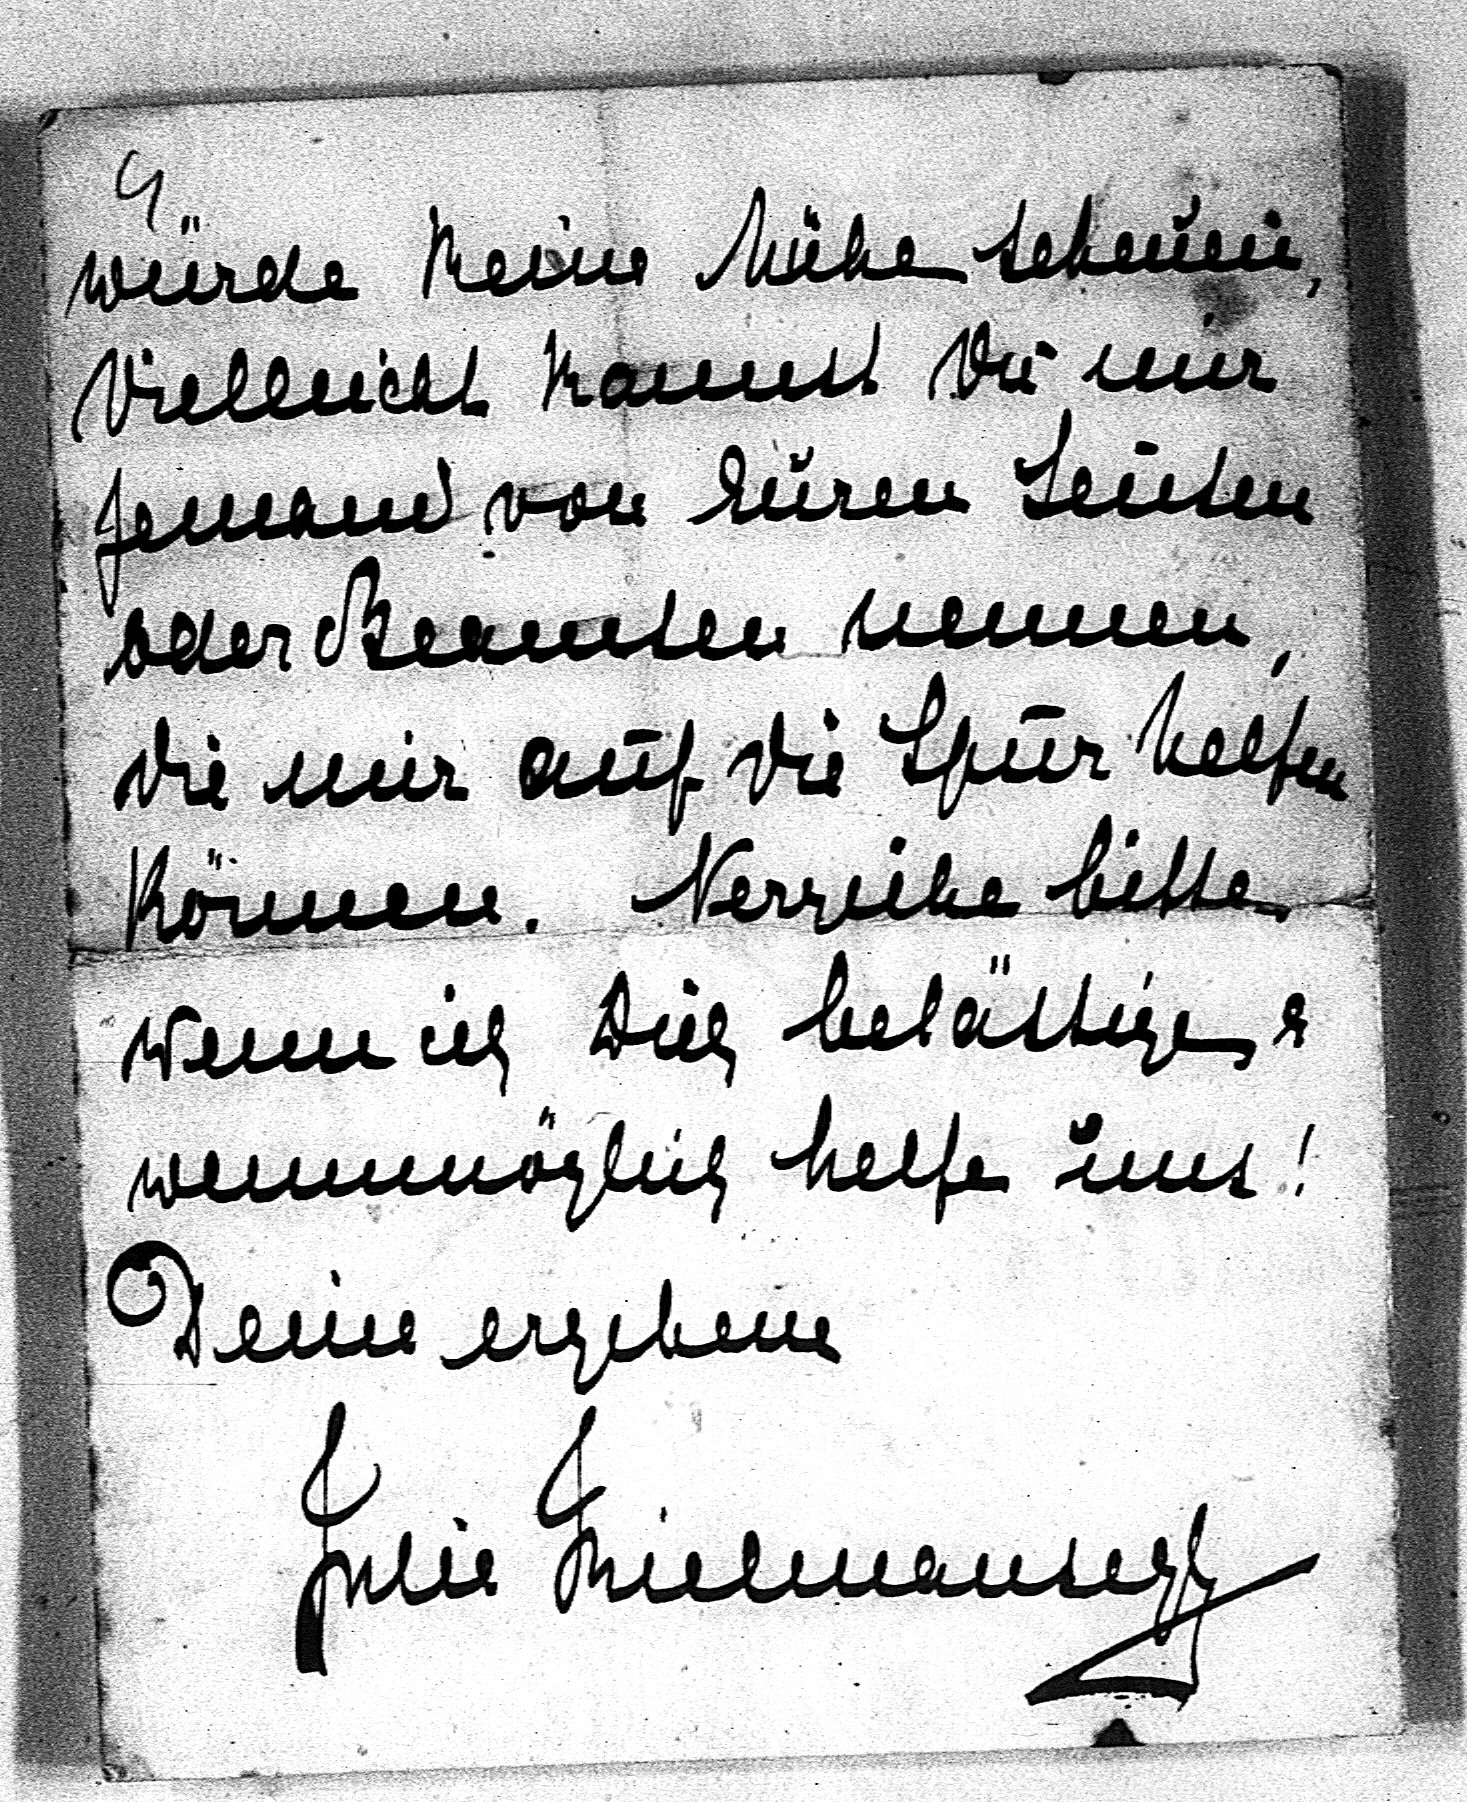 4
würde keine Mühe scheuen,
vielleicht kannst Du mir
Jemand von Euren Leuten
oder Beamten nennen,
die mir auf die Spur helfen
können. Verzeihe bitte
wenn ich Dich belästige &
wennmöglich helfe uns!
Deine ergebene
Julie Thielmansegg